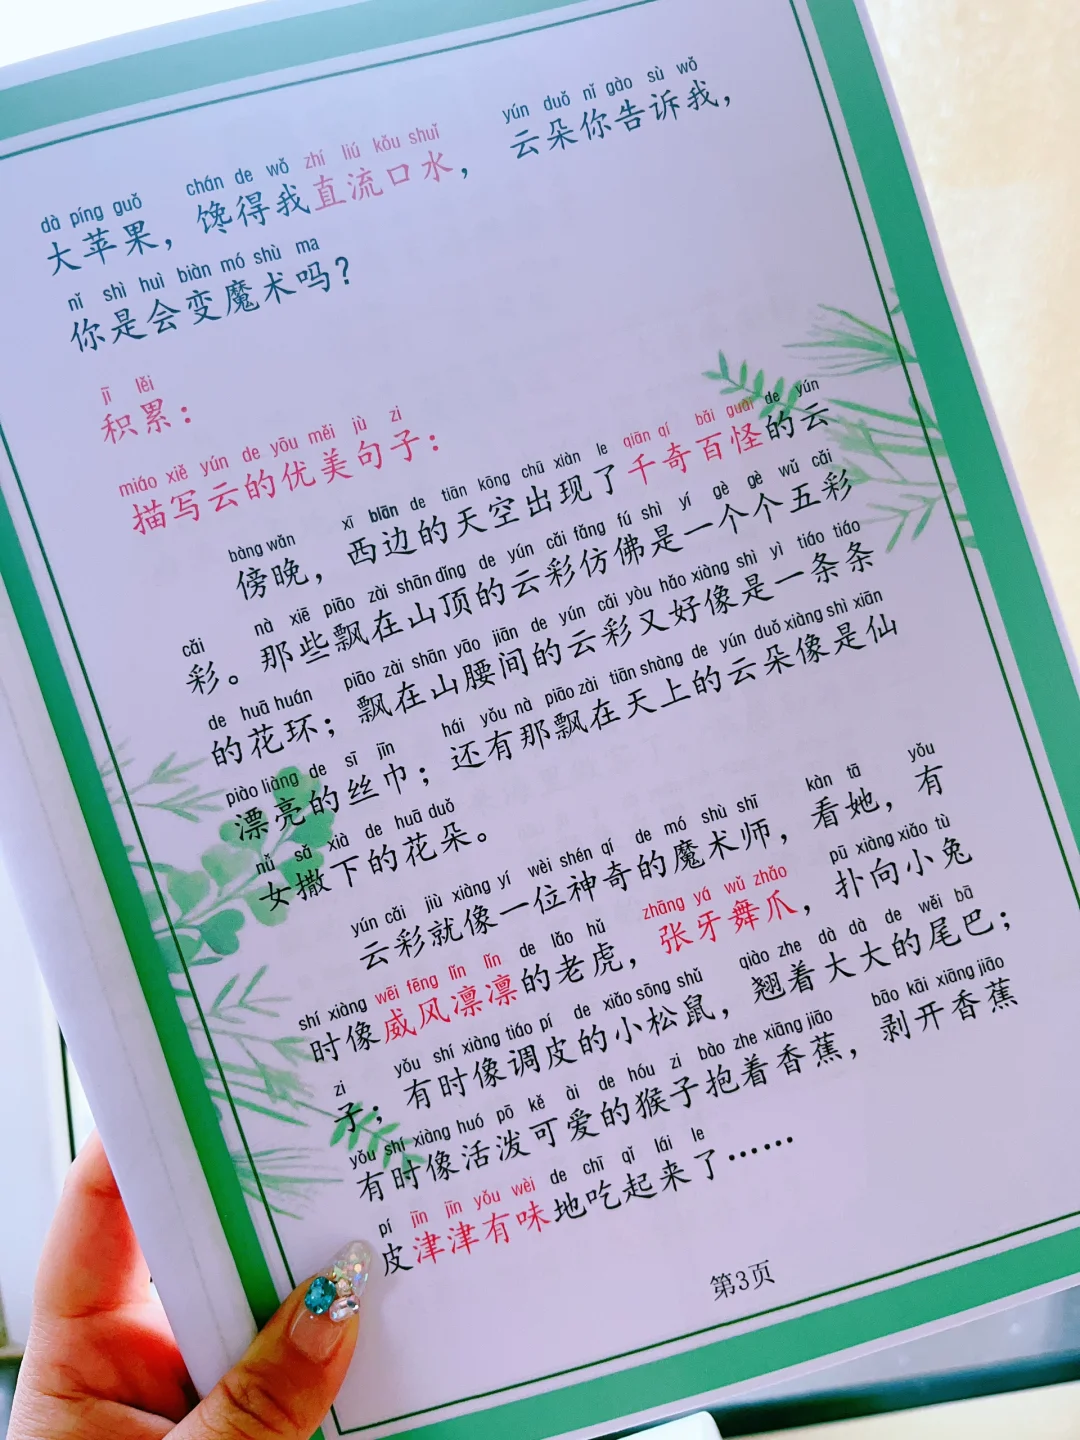 dà píng guǒ chán de wǒ zhí liú kǒu shuǐ yún duǒ nǐ gào sù wǒ
大苹果，馋得我直流口水，云朵你告诉我，
nǐ shì huì biàn mó shù ma
你是会变魔术吗？
jī lěi
积累：
miáo xiě yún de yōu měi jù zi
描写云的优美句子：
bàng wǎn xī biān de tiān kōng chū xiàn le qiān qí bǎi guài de yún
傍晚，西边的天空出现了千奇百怪的云
cǎi nà xiē piāo zài shān dǐng de yún cǎi fǎng fú shì yí gè gè wǔ cǎi
彩。那些飘在山顶的云彩仿佛是一个个五彩
de huā huán piāo zài shān yāo jiān de yún cǎi yòu hǎo xiàng shì yì tiáo tiáo
的花环；飘在山腰间的云彩又好像是一条条
piào liàng de sī jīn hái yǒu nà piāo zài tiān shàng de yún duǒ xiàng shì xiān
漂亮的丝巾；还有那飘在天上的云朵像是仙
nǚ sǎ xià de huā duǒ
女撒下的花朵。
yún cǎi jiù xiàng yí wèi shén qí de mó shù shī kàn tā yǒu
云彩就像一位神奇的魔术师，看她，有
shí xiàng wēi fēng lǐn lǐn de lǎo hǔ zhāng yá wǔ zhǎo pū xiàng xiǎo tù
时像威风凛凛的老虎，张牙舞爪，扑向小兔
zi yǒu shí xiàng tiáo pí de xiǎo sōng shǔ qiào zhe dà dà de wěi bā
子；有时像调皮的小松鼠，翘着大大的尾巴；
yǒu shí xiàng huó pō kě ài de hóu zi bào zhe xiāng jiāo bāo kāi xiāng jiāo
有时像活泼可爱的猴子抱着香蕉，剥开香蕉
pí jīn jīn yǒu wèi de chī qǐ lái le
皮津津有味地吃起来了……
第3页